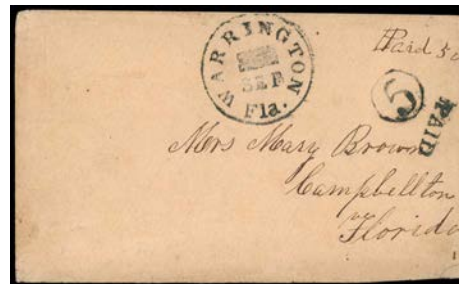 Paid 5
WARRINGTON
SEP
Fla.
5
PAID
Mrs Mary Brown
Campbellton
Florida